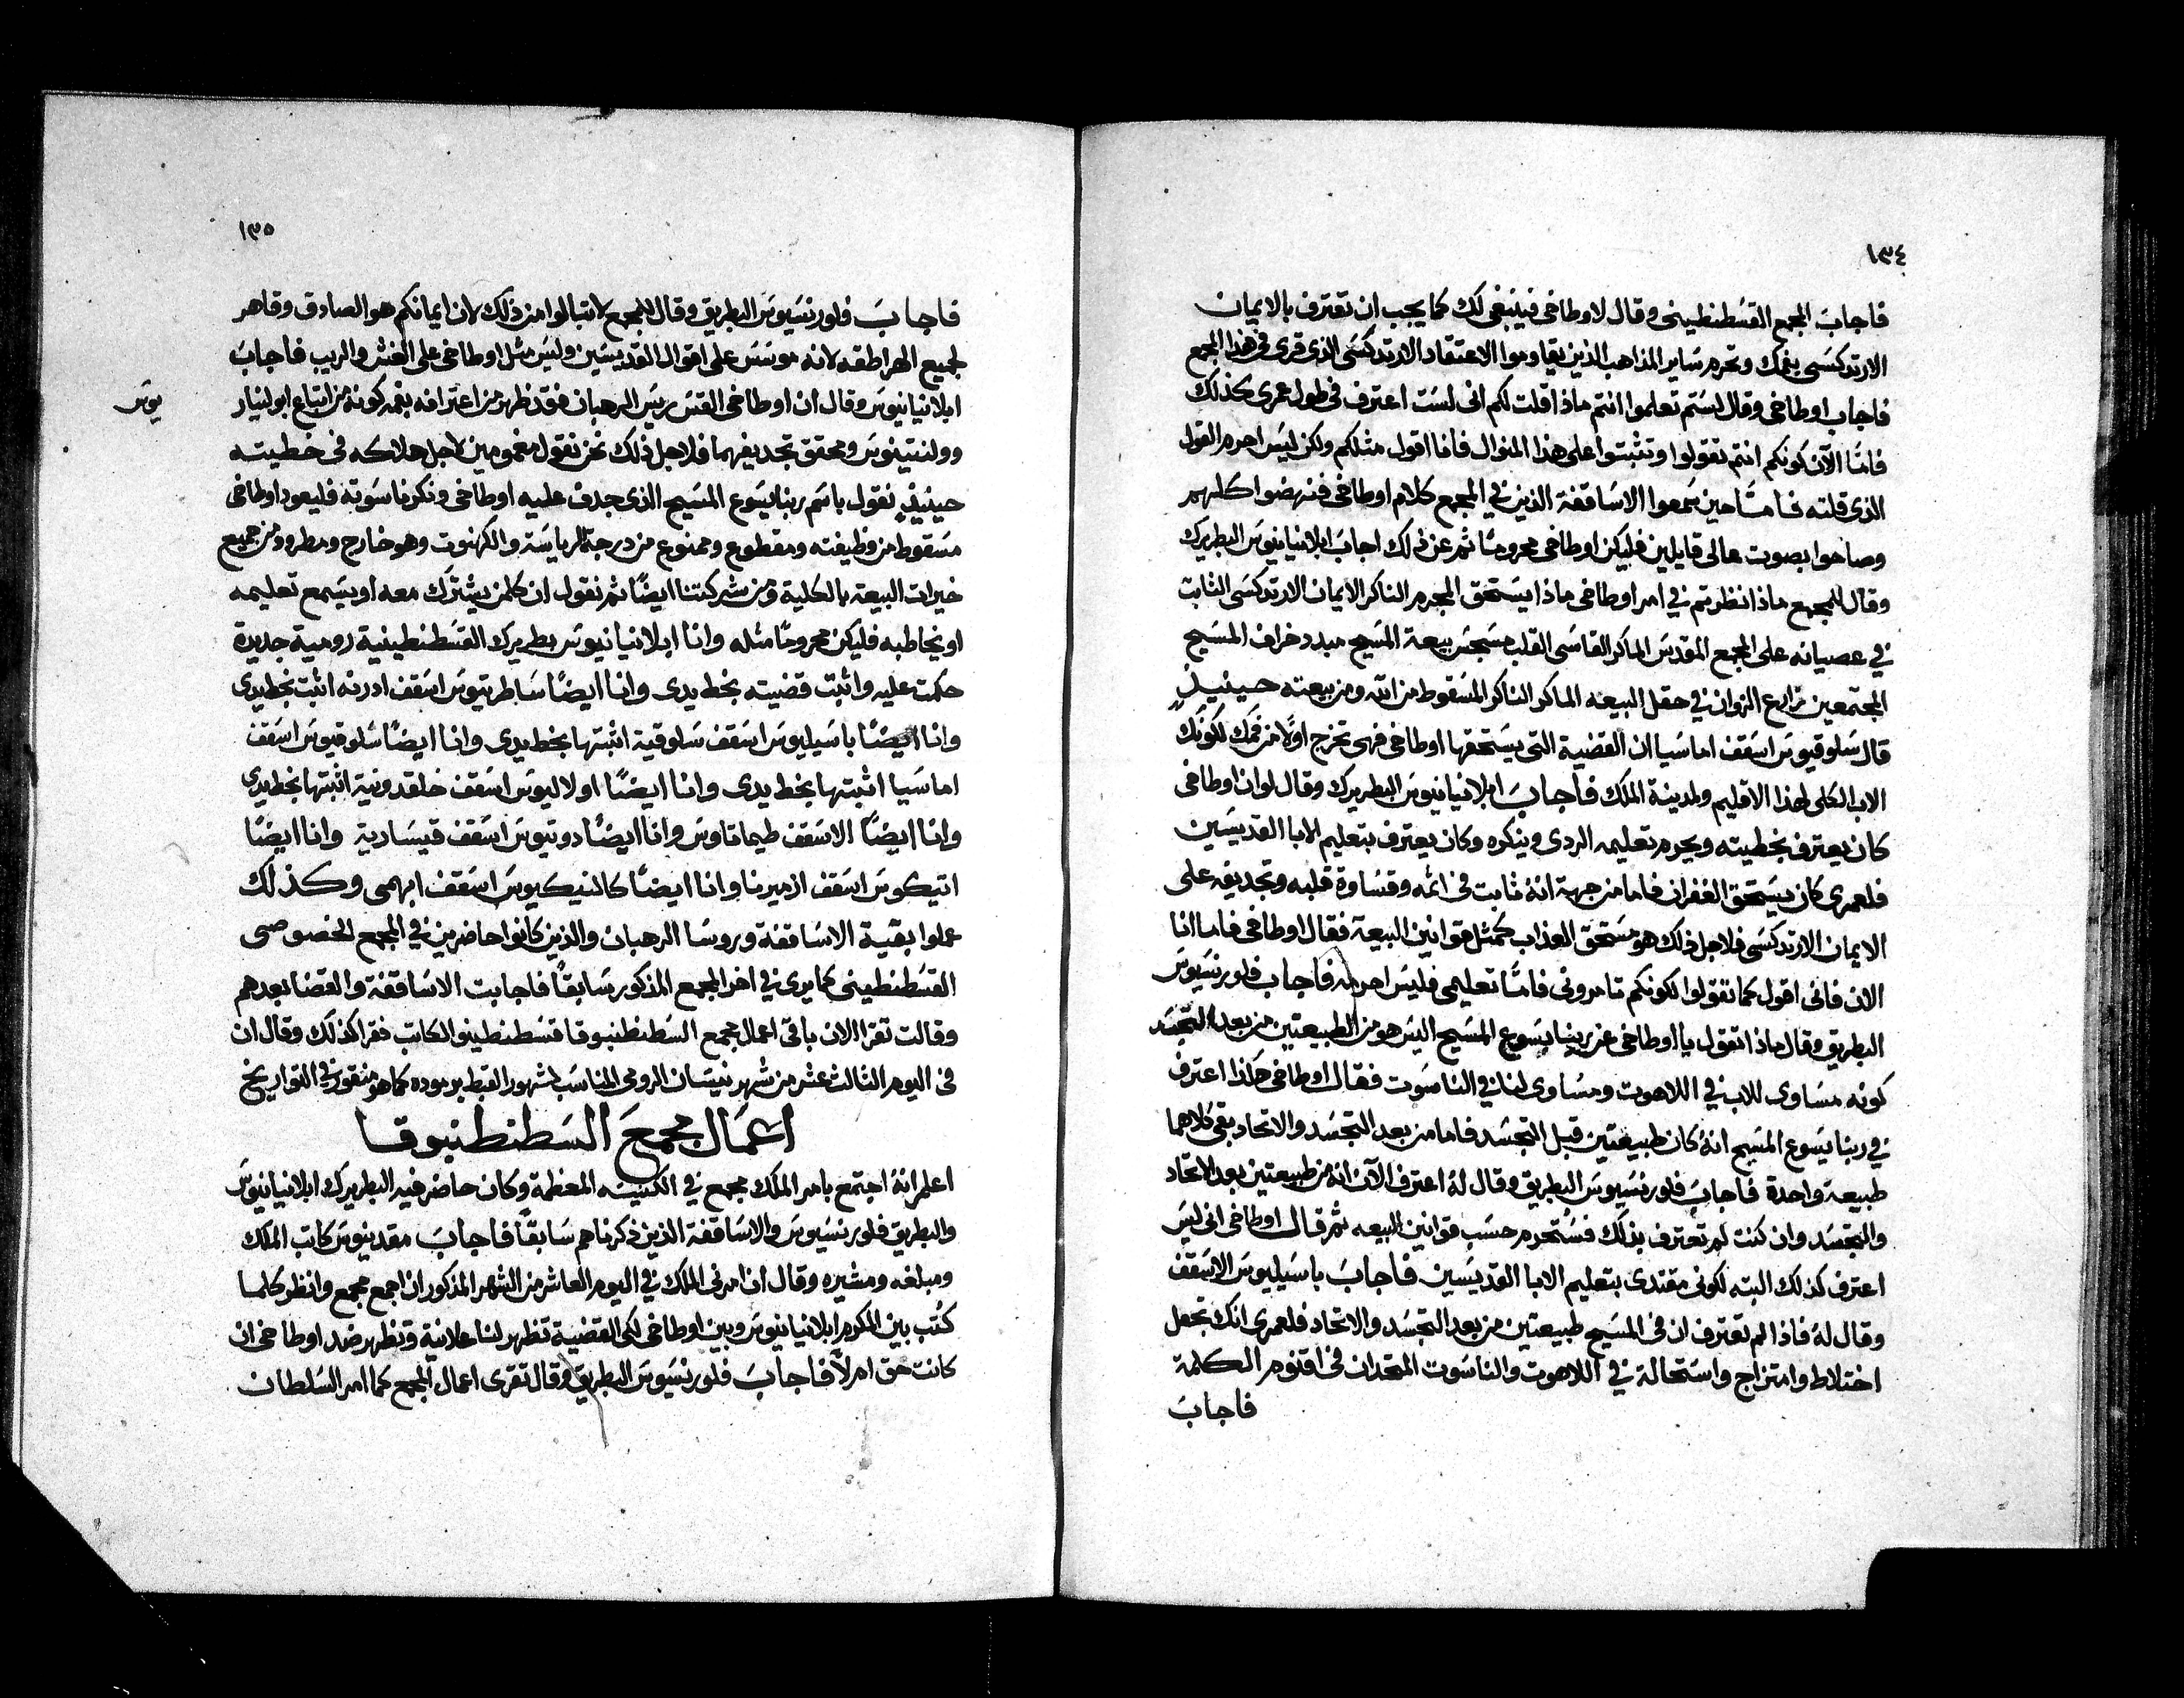 ١٣٤
فاجاب المجمع القسطنطيني وقال لاوطاخي فينبغي لك كما يجب ان تعترف بالايمان
الارتدكسي بفمك وتحرم ساير المذاهب الذين يقاوموا الاعتقاد الارتدكسي الذي قري في هذا المجمع
فاجاب اوطاخي وقال لستم تعلموا انتم ماذا قلت لكم اني لست اعترف في طول عمري كذلك
فامّا الآن كونكم انتم تقولوا وتثبتوا على هذا المنوال فانا اقول مثلكم ولكن ليس احرم القول
الذي قلته فامّا حين سمعوا الاساقفة الذين في المجمع كلام اوطاخي فنهضوا كلهم
وصاحوا بصوت عالى قايلين فليكن اوطاخي محرومًا ثم عن ذلك اجاب ابلانيانوس البطريرك
وقال للمجمع ماذا نظرتم في امر اوطاخي ماذا يستحق المجرم الناكر الايمان الارتدكسي الثابت
في عصيانه على المجمع المقدس الماكر القاسي القلب مسجس بيعة المسيح مبدد خراف المسيح
المجتمعين زارع الزوان في حقل البيعه الماكر الناكر المسقوط من الله ومن بيعته حينيذٍ
قال سلوقيوس اسقف اماسيا ان القضية التي يستحقها اوطاخي فهي تخرج اولًا من فمك لكونك
الاب الكلى لهذا الاقليم ولمدينة الملك فاجاب ابلانيانيوس البطريرك وقال لو ان اوطاخي
كان يعترف بخطيته ويحرم تعليمه الردي وينكره وكان يعترف بتعليم الابا القديسين
فلعمري كان يستحق الغفران فاما من جهة انه ثابت في اثمه وقساوة قلبه وتجديفه على
الايمان الارتدكسي فلاجل ذلك هو مستحق العذاب كمثل قوانين البيعة فقال اوطاخي فاما انا
الان فاني اقول كما تقولوا لكونكم تامروني فامّا تعليمي فليس احرمه فاجاب فلورنسيوس
البطريق وقال ماذا تقول يا اوطاخي عن ربنا يسوع المسيح اليس هو من الطبيعتين من بعد التجسد
كونه مساوي للاب في اللاهوت ومساوي لنا في الناسوت فقال اوطاخي هكذا اعترف
في ربنا يسوع المسيح انهُ كان طبيعتين قبل التجسد فاما من بعد التجسد والاتحاد بقي كلاهما
طبيعة واحدة فاجاب فلورنسيوس البطريق وقال لهُ اعترف الآن انه من طبيعتين بعد الاتحاد
والتجسد وان كنت لم تعترف بذلك فستحرم حسب قوانين البيعه ثم قال اوطاخي اني ليس
اعترف كذلك البته لكوني مقتدي بتعليم الابا القديسين فاجاب باسيليوس الاسقف
وقال لهُ فاذا لم تعترف ان في المسيح طبيعتين من بعد التجسد والاتحاد فلعمري انك تجعل
اختلاط وامتزاج واستحالة في اللاهوت والناسوت المتحدان في اقنوم الكلمة
فاجاب
١٣٥
فاجاب فلورنسيوس البطريق وقال للمجمع لا تبالوا من ذلك لان ايمانكم هو الصادق وقاهر
لجميع الهراطقه لانه موسس على اقوال القديسين وليس مثل اوطاخي على الغش والريب فاجاب
ابلانيانيوس وقال ان اوطاخي القس ريس الرهبان فقد ظهر من اعترافه بفمه كونه من اتباع ابولينار
يوس
وولنتينوس ومحقق تجديفهما فلاجل ذلك نحن نقول مغمومين لاجل هلاكه في خطيته
حينيذٍ نقول باسم ربنا يسوع المسيح الذي جدف عليه اوطاخي ونكر ناسوته فليعود اوطاخي
مسقوط من وظيفته ومقطوع وممنوع من درجة الرياسة والكهنوت وهو خارج ومطرود من جميع
خيرات البيعة بالكلية ومن شركتنا ايضًا ثم نقول ان كلمن يشترك معه او يسمع تعليمه
او يخاطبه فليكن محرومًا مثله وانا ابلانيانيوس بطريرك القسطنطينية رومية جديدة
حكمت عليه واثبت قضيته بخط يدي وانا ايضًا ساطرنيوس اسقف ادرنه اثبت بخط يدي
وانا ايضًا باسيليوس اسقف سلوقية اثبتها بخط يدي وانا ايضًا سلوقيوس اسقف
اماسيا اثبتها بخط يدي وانا ايضًا اولاليوس اسقف خلقدونية اثبتها بخط يدي
وانا ايضًا الاسقف طيماتاوس وانا ايضًا دوتيوس اسقف قيسارية وانا ايضًا
اتيكوس اسقف ازميرنا وانا ايضًا كالنيكيوس اسقف ابهمي وكذلك
عملوا بقية الاساقفة وروسا الرهبان والذين كانوا حاضرين في المجمع الخصوصي
القسطنطيني كما يرى في اخر المجمع المذكور سابقًا فاجابت الاساقفة والقضا بعدهم
وقالت تقرا الان باقي اعمال مجمع السطنطنبوقا قسطنطينو الكاتب فقرا كذلك وقال ان
في اليوم الثالث عشر من شهر نيسان الرومي المناسب لشهور القبط برموده كما هو منقور في التواريخ
اعمال مجمع السطنطنيوقا
اعلم انهُ اجتمع بامر الملك مجمع في الكنيسه المعظمة وكان حاضر فيه البطريرك ابلانيانيوس
والبطريق فلورنسيوس والاساقفة الذين ذكرناهم سابقًا فاجاب مقدنيوس كاتب الملك
ومبلغه ومشيره وقال ان امرني الملك في اليوم العاشر من الشهر المذكور ان اجمع مجمع وانظر كلما
كُتب بين المكرم ابلانيانيوس وبين اوطاخي لكي القضية تظهر لنا علانية وتظهر ضد اوطاخي ان
كانت حق ام لا فاجاب فلورنسيوس البطريق وقال تقرى اعمال المجمع كما امر السلطان